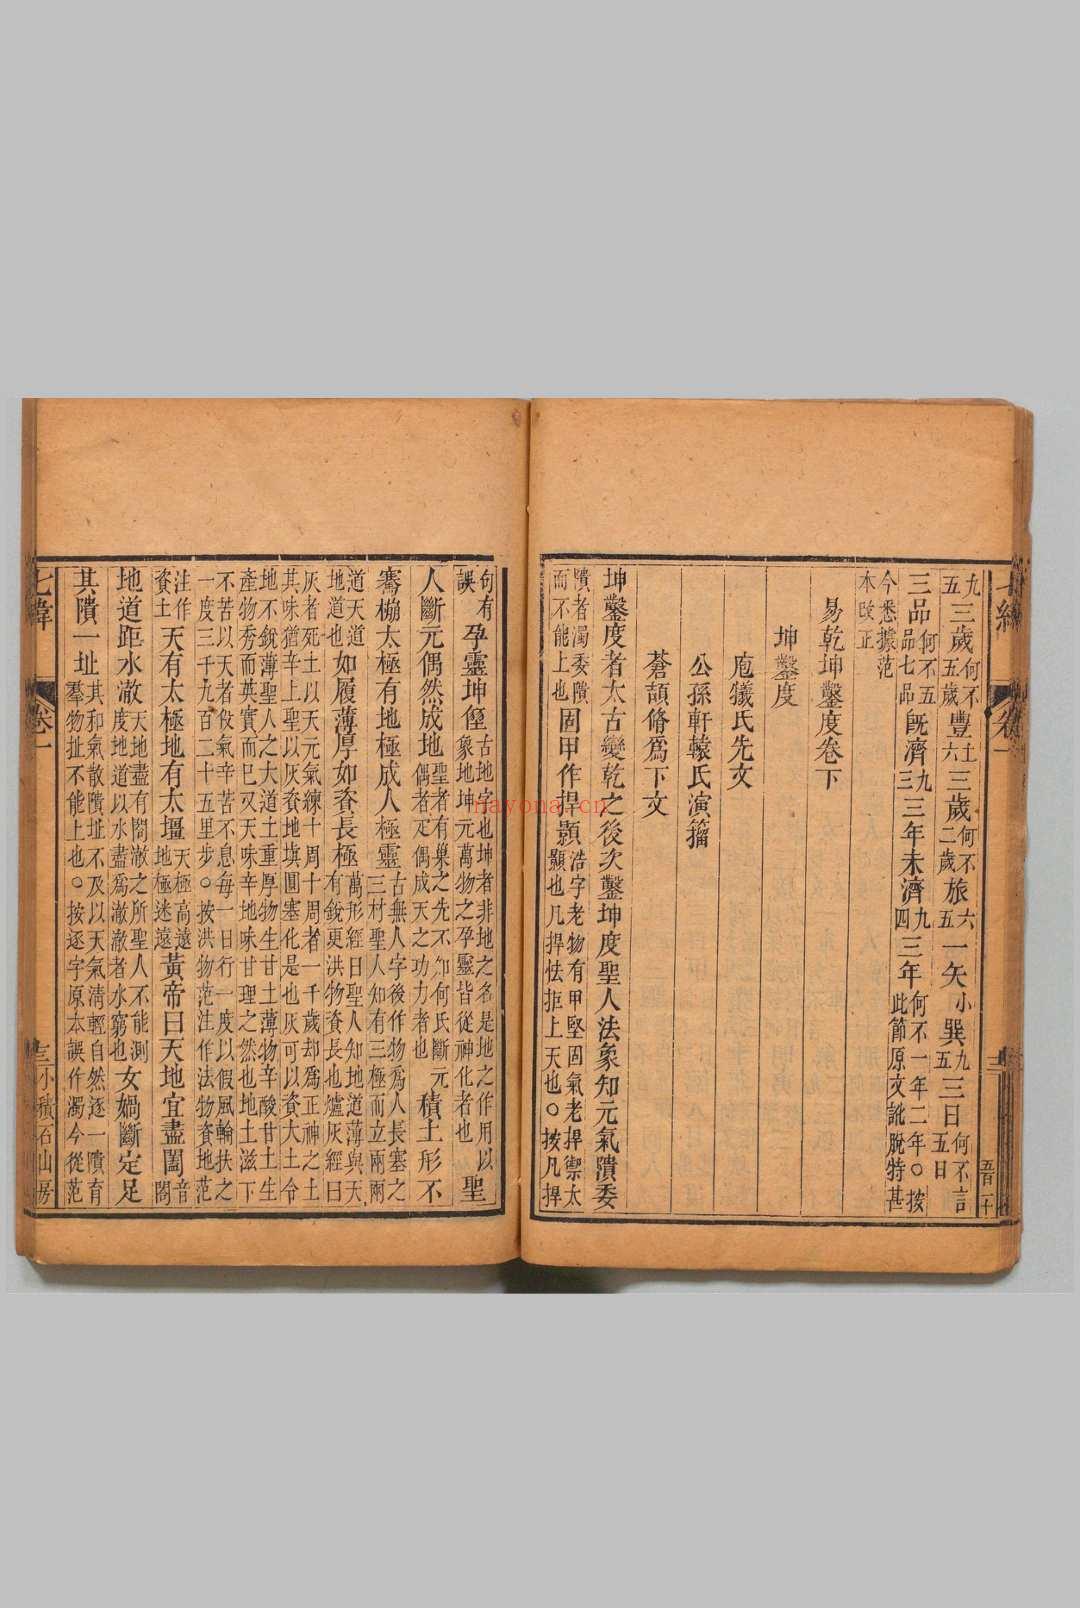 九五三歲何不五歲豐上六三歲何不二歲旅六五一矢小巽九五三日何不言五日
三品何不五品七品旣濟九三三年未濟九四三年何不一年二年○按此節原文訛脫特甚
今悉據范本改正
易乾坤鑿度卷下
坤鑿度
庖犧氏先文
公孫軒轅氏演籀
蒼頡脩爲下文
坤鑿度者太古變乾之後次鑿坤度聖人法象知元氣隤委
隤者濁委隤而不能上也固甲作捍顥浩字老物有甲堅固氣老捍禦太顥也凡捍怯拒上天也○按凡捍
句有誤孕靈坤𡎐古地字也坤者非地之名是地之作用以象地坤元萬物之孕靈皆從神化者也聖
人斷元偶然成地聖者有巢之先不知何氏斷元偶者定偶成天之功力者也積土形不
騫㭝太極有地極成人極靈古無人字後作物爲人長塞之三材聖人知有三極而立兩兩
道天道地道也如履薄厚如資長極萬形經曰聖人知地道薄與天有銳更洪物資長也爐灰經曰
灰者死土以天元氣練十周十周者一千歲却爲正神之土其味猶辛上聖以灰資地塡圓塞化是也灰可以資大土令
地不銳薄聖人之大道土重厚物生甘土薄物辛酸甘土生產物秀而英實而巳又天味辛地味甘理之然也地土滋下
不苦以天者攸氣辛苦不息每一日行一度以假風輪扶之一度三千九百二十五里步○按洪物范注作法物資地范
注作資土天有太極地有太壃天極高遠地極迷遠黃帝曰天地宜盡闔音閤
地道距水澈天地盡有閤澈之所聖人不能測度地道以水盡爲澈澈者水窮也女媧斷定足
其隤一址其和氣散隤址不及以天氣淸輕自然逐一隤育羣物扯不能上也○按逐字原本誤作濁今從范
七緯
卷一
三
小積石山房